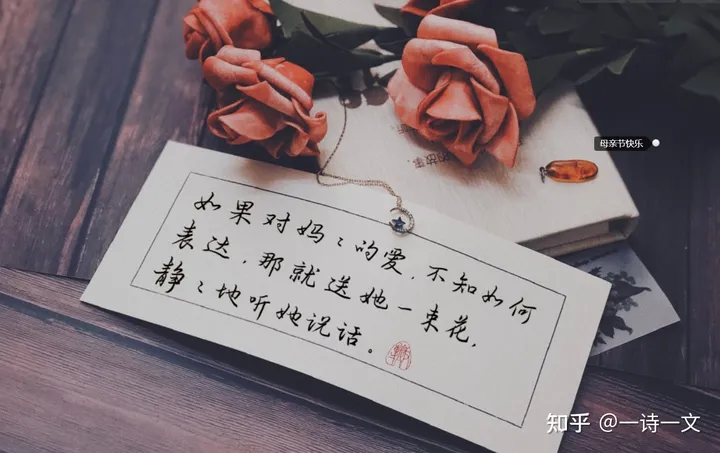 母亲节快乐
如果对妈〻的爱，不知如何
表达，那就送她一束花，
静〻地听她说话。
知乎 @一诗一文